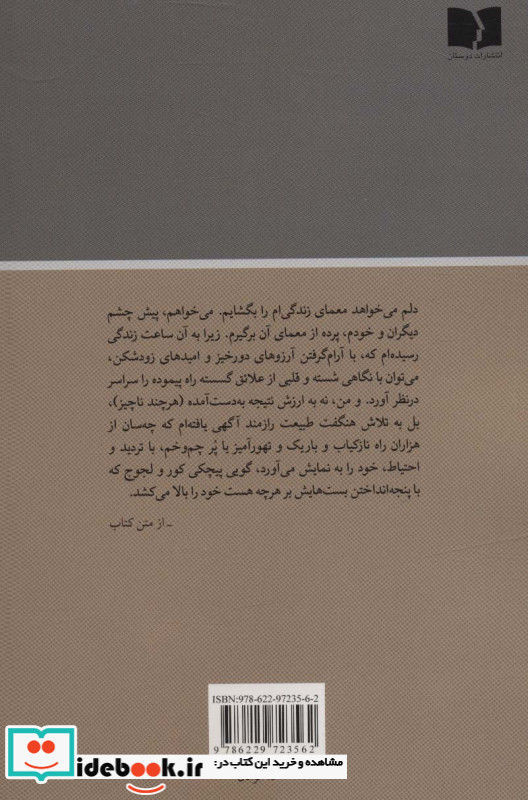 انتشارات دوستان
دلم می‌خواهد معمای زندگی‌ام را بگشایم. می‌خواهم، پیش چشم
دیگران و خودم، پرده از معمای آن برگیرم. زیرا به آن ساعت زندگی
رسیده‌ام که، با آرام‌گرفتن آرزوهای دورخیز و امیدهای زودشکن،
می‌توان با نگاهی شسته و قلبی از علائق گسسته راه پیموده را سراسر
درنظر آورد. و من، نه به ارزش نتیجه به‌دست‌آمده (هرچند ناچیز)،
بل به تلاش هنگفت طبیعت رازمند آگهی یافته‌ام که چه‌سان از
هزاران راه نازکیاب و باریک و تهورآمیز یا پُر چم‌وخم، با تردید و
احتیاط، خود را به نمایش می‌آورد، گویی پیچکی کور و لجوج که
با پنجه‌انداختن بست‌هایش بر هرچه هست خود را بالا می‌کشد.
ـ از متن کتاب
ISBN:978-622-97235-6-2
9 786229 723562
مشاهده و خرید این کتاب در:
idebook.ir